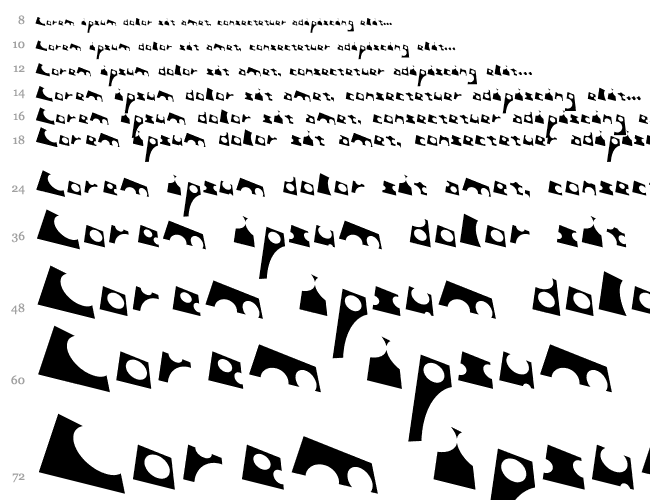 8 Lorem ipsum dolor sit amet, consectetuer adipiscing elit...
10 Lorem ipsum dolor sit amet, consectetuer adipiscing elit...
12 Lorem ipsum dolor sit amet, consectetuer adipiscing elit...
14 Lorem ipsum dolor sit amet, consectetuer adipiscing elit...
16 Lorem ipsum dolor sit amet, consectetuer adipiscing e
18 Lorem ipsum dolor sit amet, consectetuer adipis
24 Lorem ipsum dolor sit amet, consec
36 Lorem ipsum dolor sit
48 Lorem ipsum dolo
60 Lorem ipsum
72 Lorem ipsu